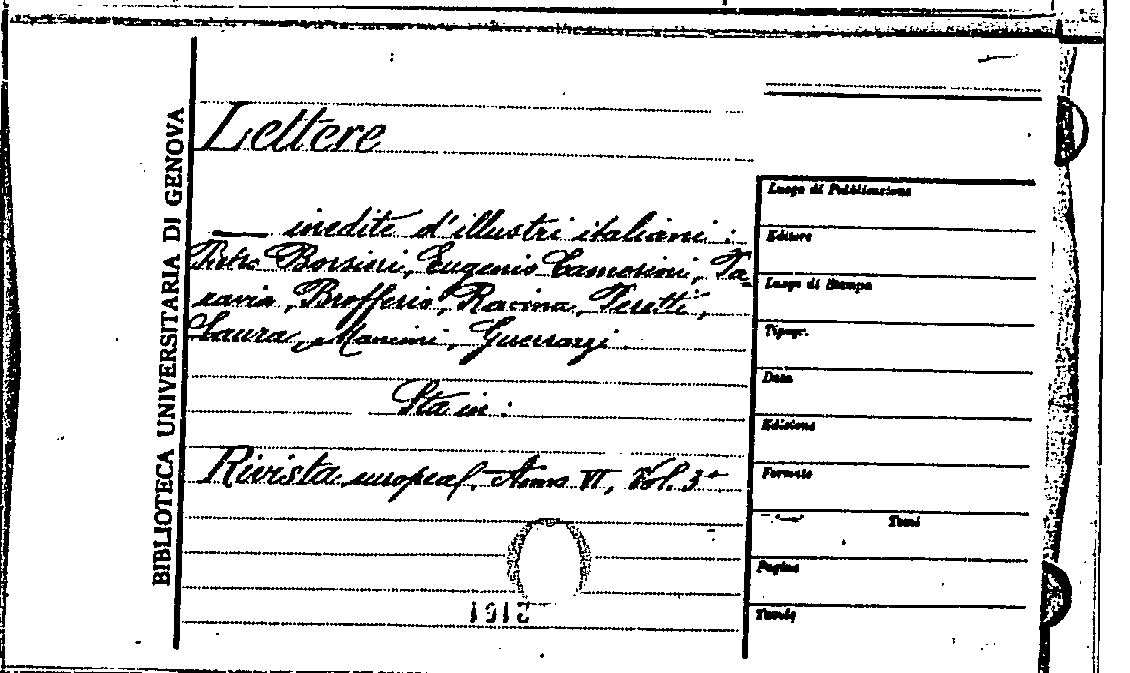 BIBLIOTECA UNIVERSITARIA DI GENOVA
Lettere
— inedite d'illustri italiani :
Pietro Borsini, Eugenio Camerini, Pa-
ravia, Brofferio, Racina, Peretti,
Laura, Mancini, Guerrazzi.
Sta in :
Rivista europea. Anno VI, Vol. 3°
Luogo di Pubblicazione
Editore
Luogo di Stampa
Tipogr.
Data
Edizione
Formato
Tomi
Pagine
Tavole